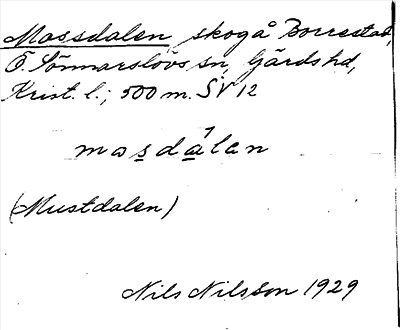 Mossdalen, skog å Borrestad,
Ö. Sönnarslövs sn, Gärds hd,
Krist. l.; 500 m. SV 12
mosdálen
(Mustdalen)
Nils Nilsson 1929